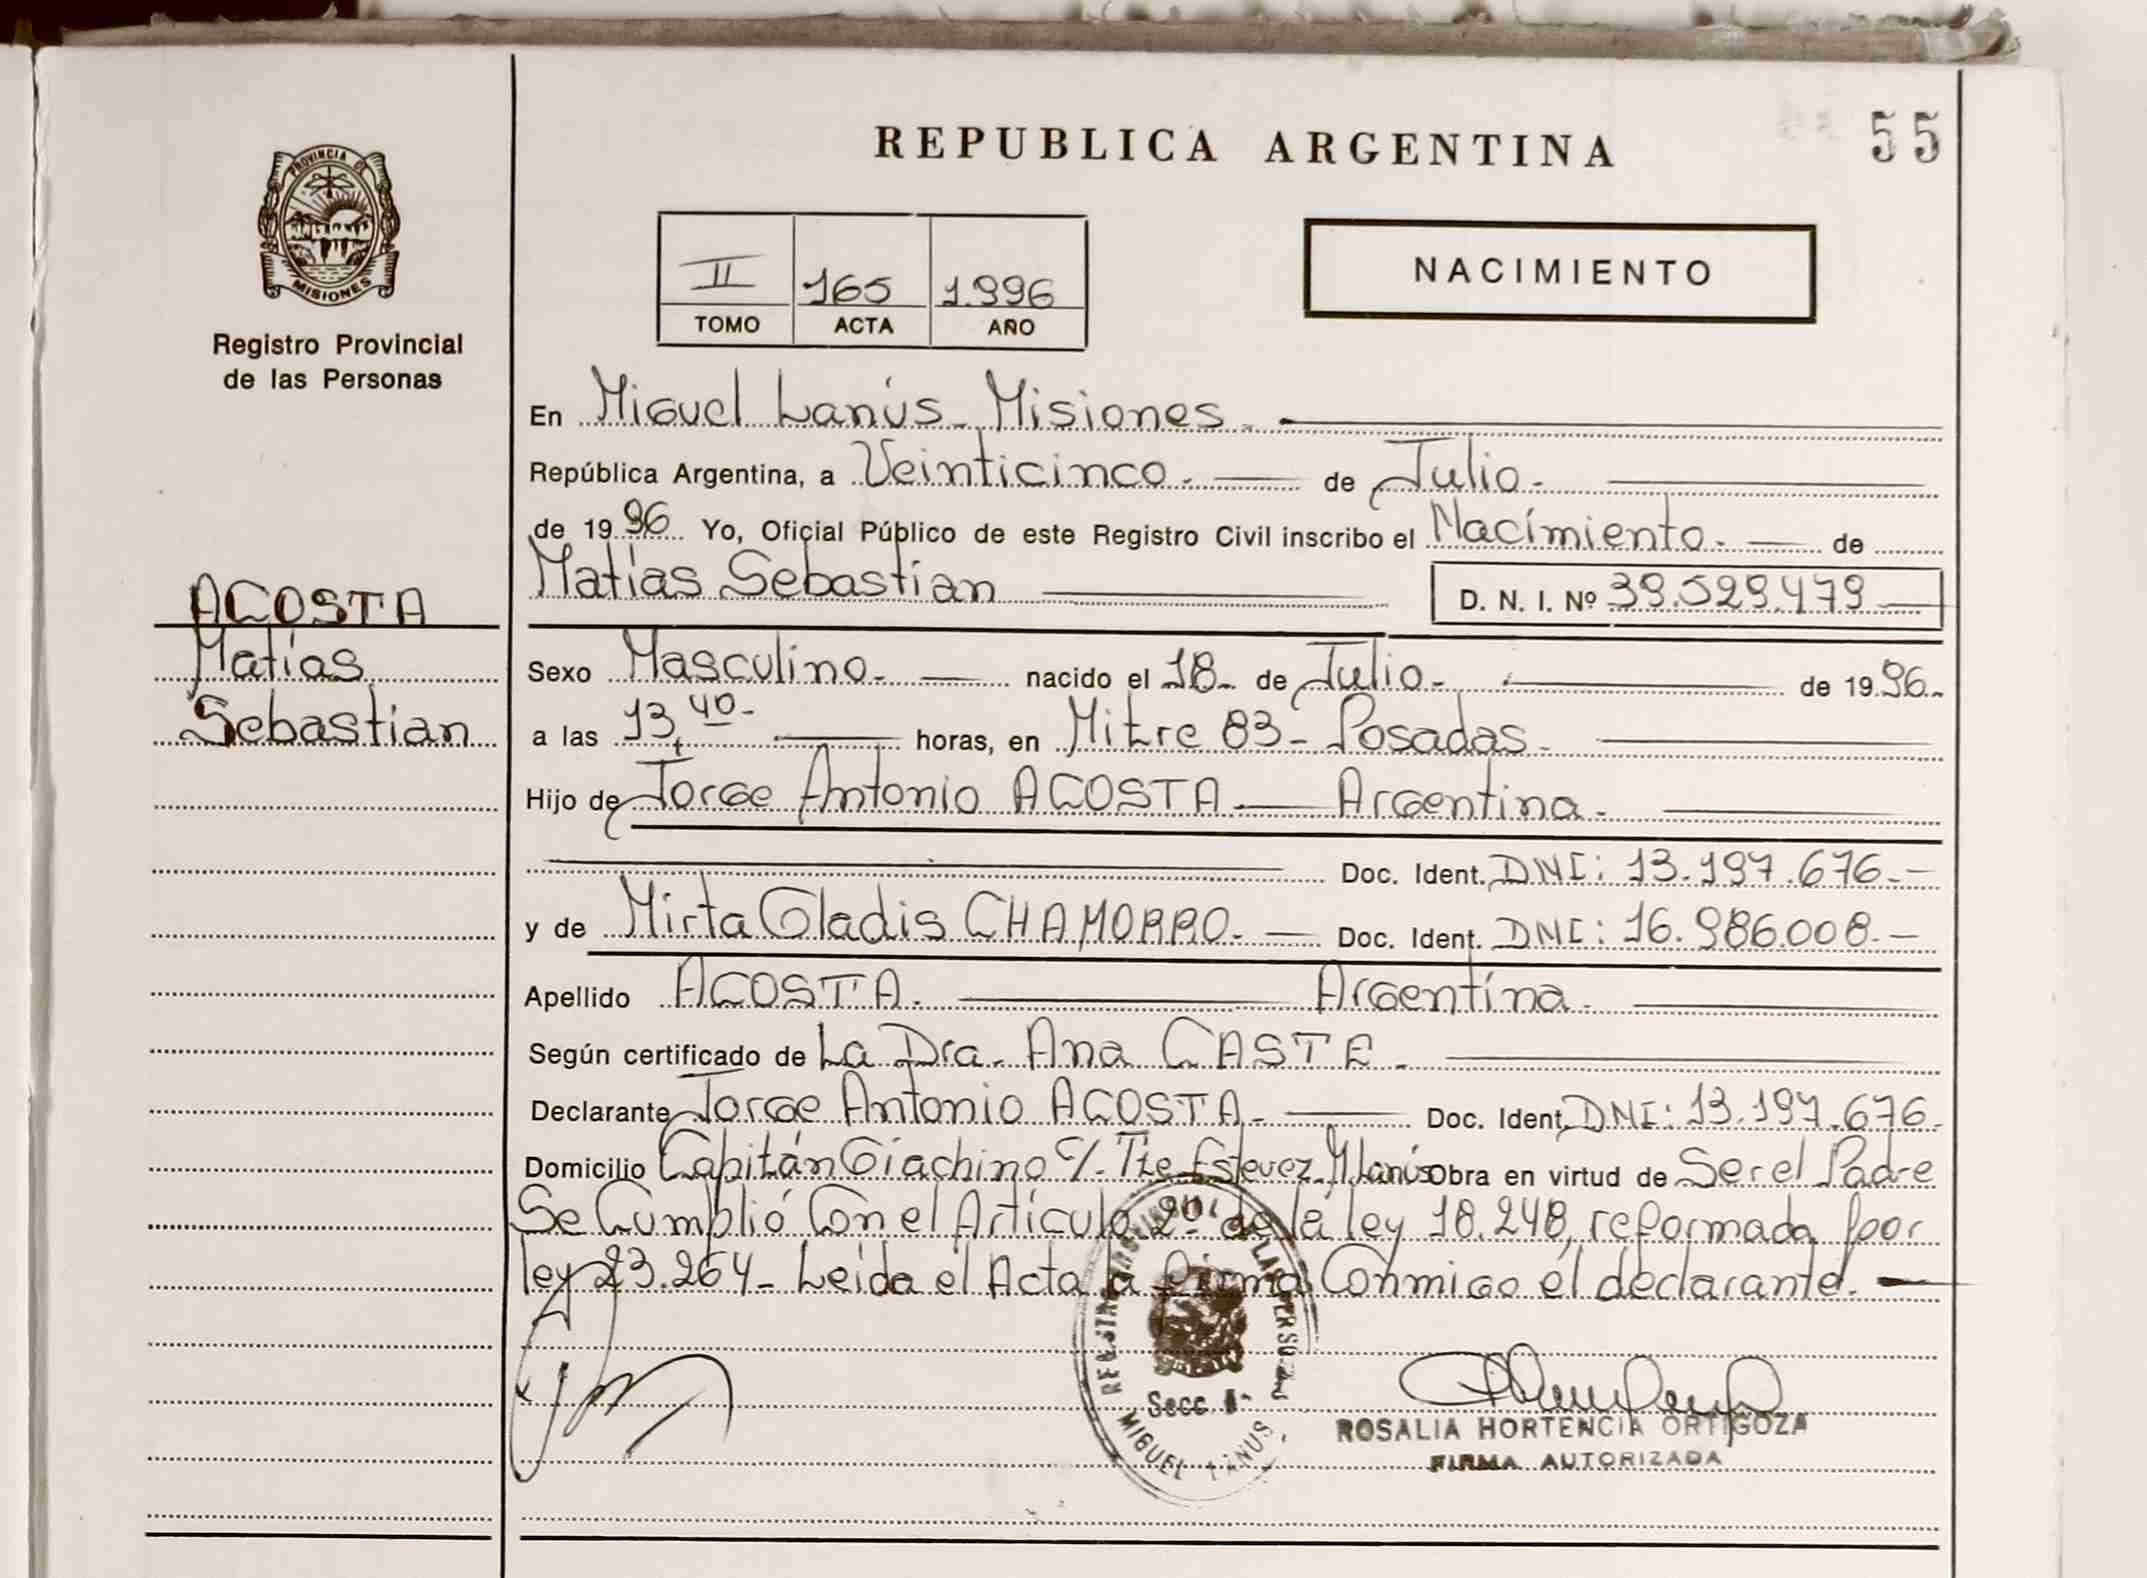 REPUBLICA ARGENTINA
55
PROVINCIA DE
MISIONES
Registro Provincial
de las Personas
II 165 1.996
TOMO ACTA AÑO
NACIMIENTO
En Miguel Lanús - Misiones.
República Argentina, a Veinticinco. de Julio.
de 1996 Yo, Oficial Público de este Registro Civil inscribo el Nacimiento. de
Matías Sebastian D. N. I. Nº 39.529.479
ACOSTA
Matías
Sebastian
Sexo Masculino. nacido el 18 de Julio. de 1996.
a las 13,40 horas, en Mitre 83 - Posadas.
Hijo de Jorge Antonio ACOSTA Argentina.
Doc. Ident. DNI: 13.197.676.-
y de Mirta Gladis CHAMORRO. Doc. Ident. DNI: 16.986.008.-
Apellido ACOSTA. Argentina.
Según certificado de La Dra. Ana CASTE.
Declarante Jorge Antonio ACOSTA. Doc. Ident. DNI: 13.197.676.
Domicilio Capitán Giachino c/. Tte Estevez. M. Lanús Obra en virtud de Ser el Padre
Se Cumplió Con el Artículo 2º. de la ley 18.248, reformada por
ley 23.264 - Leída el Acta la firma Conmigo el declarante.
Secc. 
MIGUEL LANUS
ROSALIA HORTENCIA ORTIGOZA
FIRMA AUTORIZADA